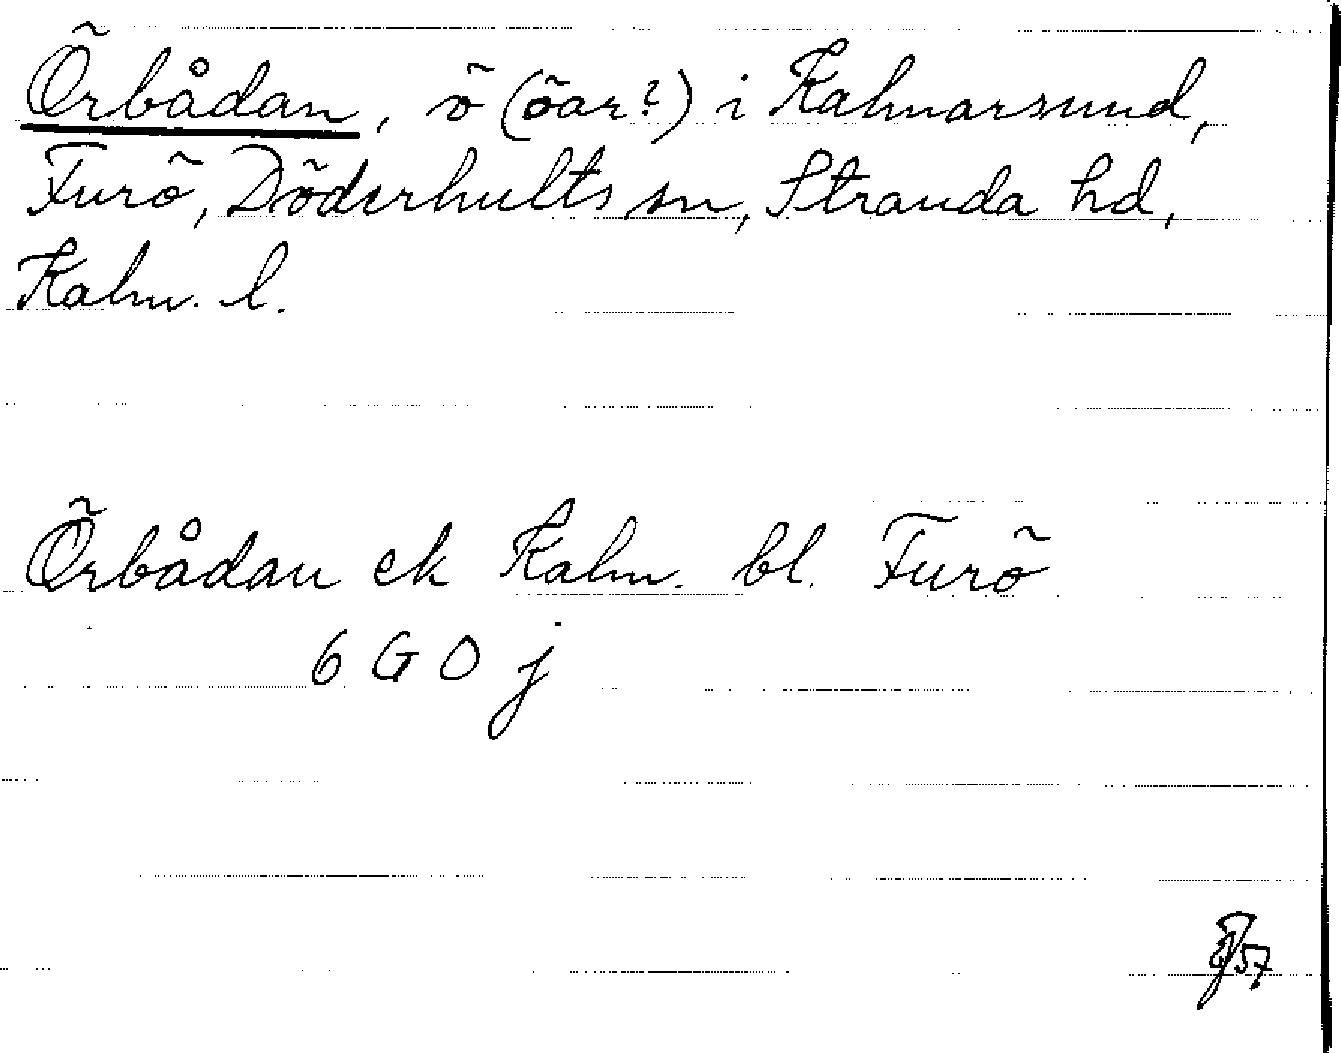 Örbådan, ö (öar?) i Kalmarsund,
Furö, Döderhults sn, Stranda hd,
Kalm. l.
Örbådan ek Kalm. bl. Furö
6 G O j
57